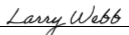 Larry Webb